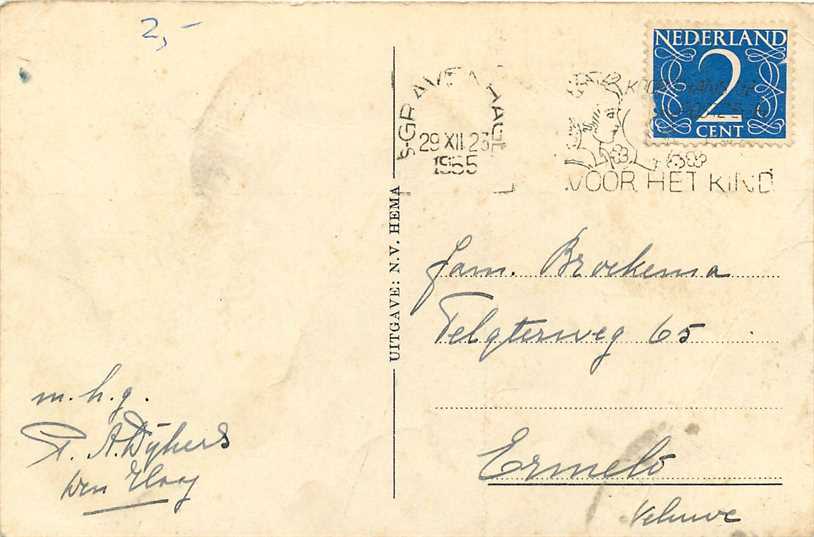 2,-
's-GRAVENHAGE
29 XII 23
1955
NEDERLAND
2
CENT
VOOR HET KIND
UITGAVE: N.V. HEMA
fam. Broekema
Telgterweg 65
Ermelo
Veluwe
m.h.g.
A. Dijkers
Den Haag